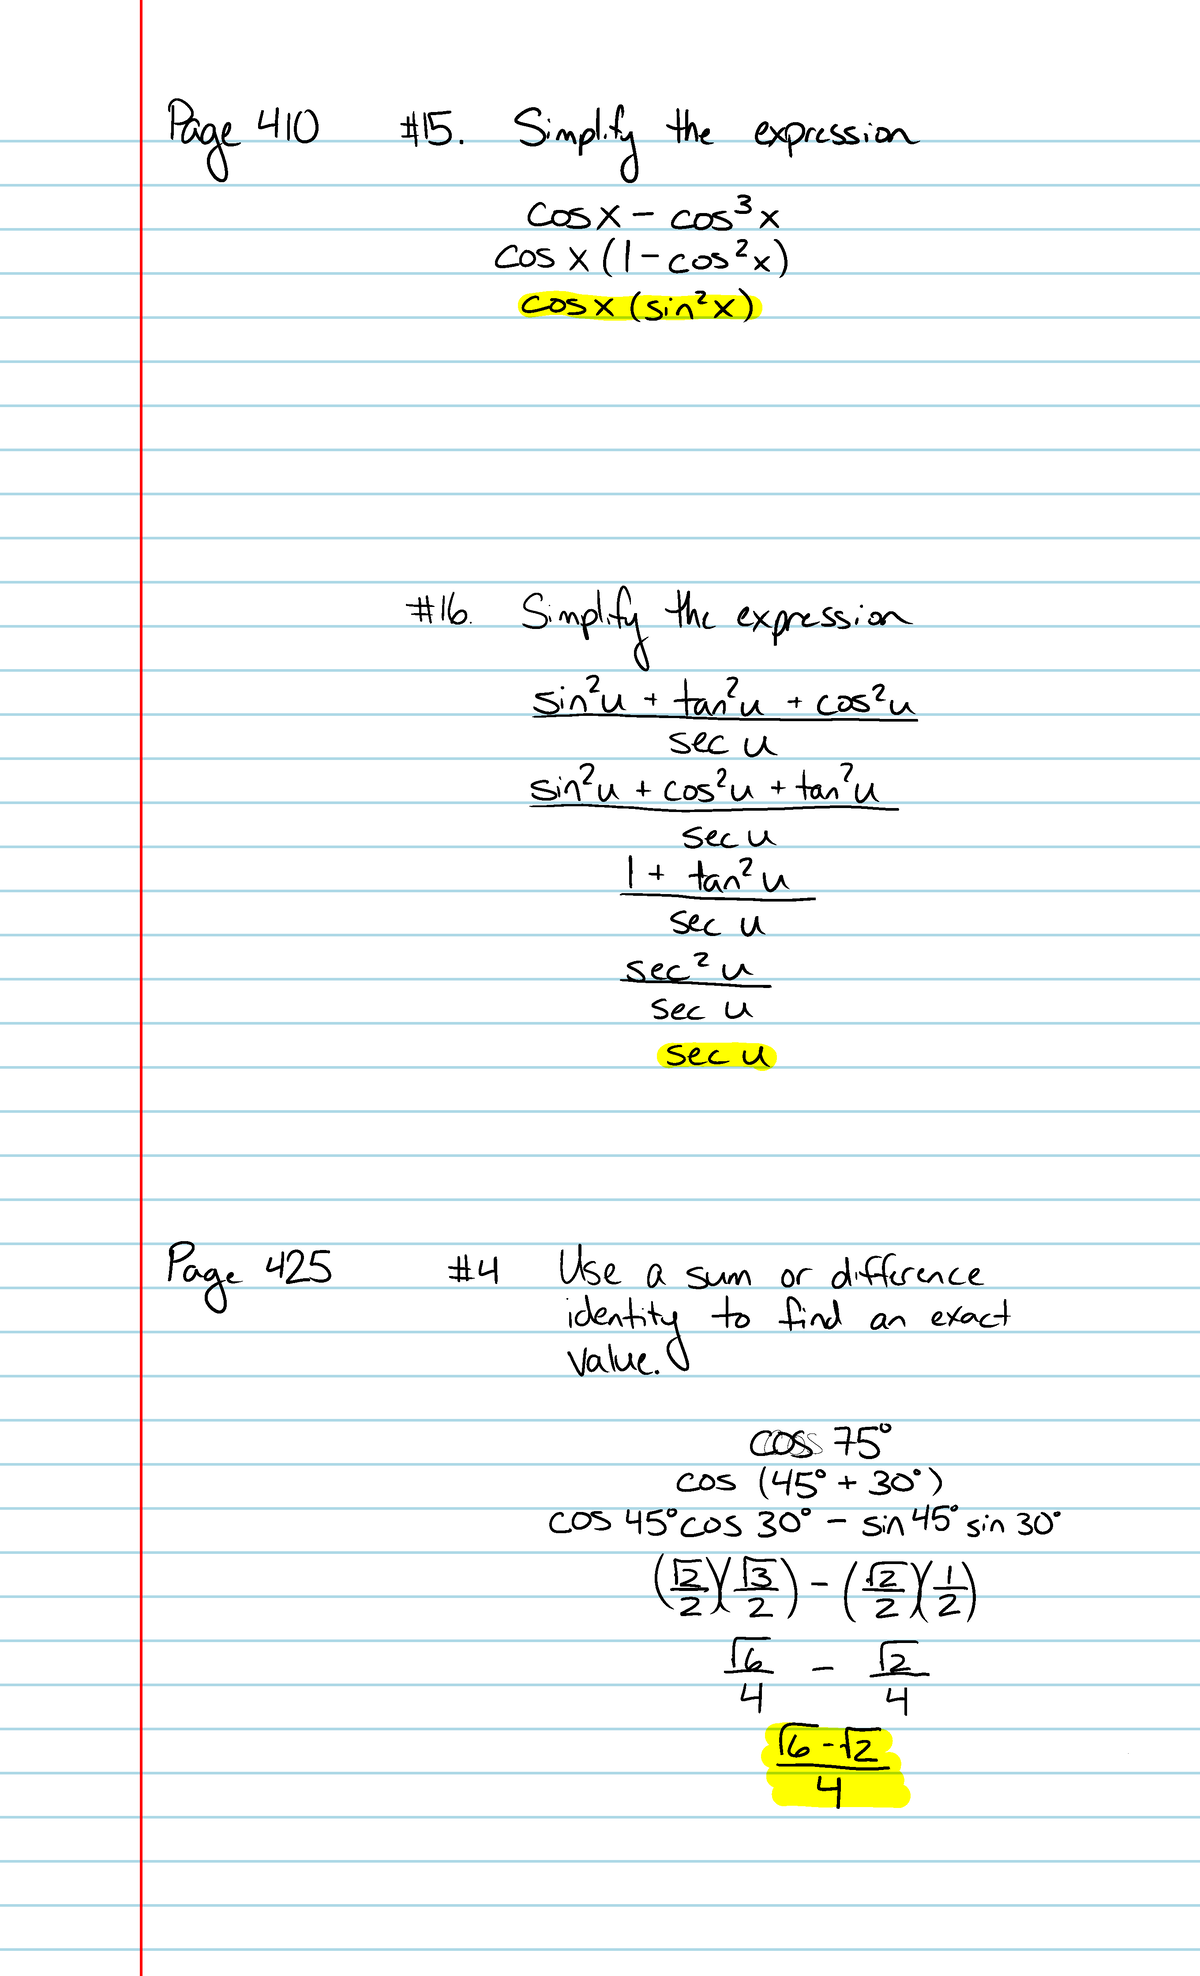 Page 410 #15. Simplify the expression
cos x - cos³x
cos x (1 - cos²x)
cos x (sin²x)
#16. Simplify the expression
sin²u + tan²u + cos²u
sec u
sin²u + cos²u + tan²u
sec u
1 + tan²u
sec u
sec²u
sec u
sec u
Page 425 #4 Use a sum or difference
identity to find an exact
value.
cos 75°
cos (45° + 30°)
cos 45° cos 30° - sin 45° sin 30°
(√2/2)(√3/2) - (√2/2)(1/2)
√6/4 - √2/4
√6-√2
4